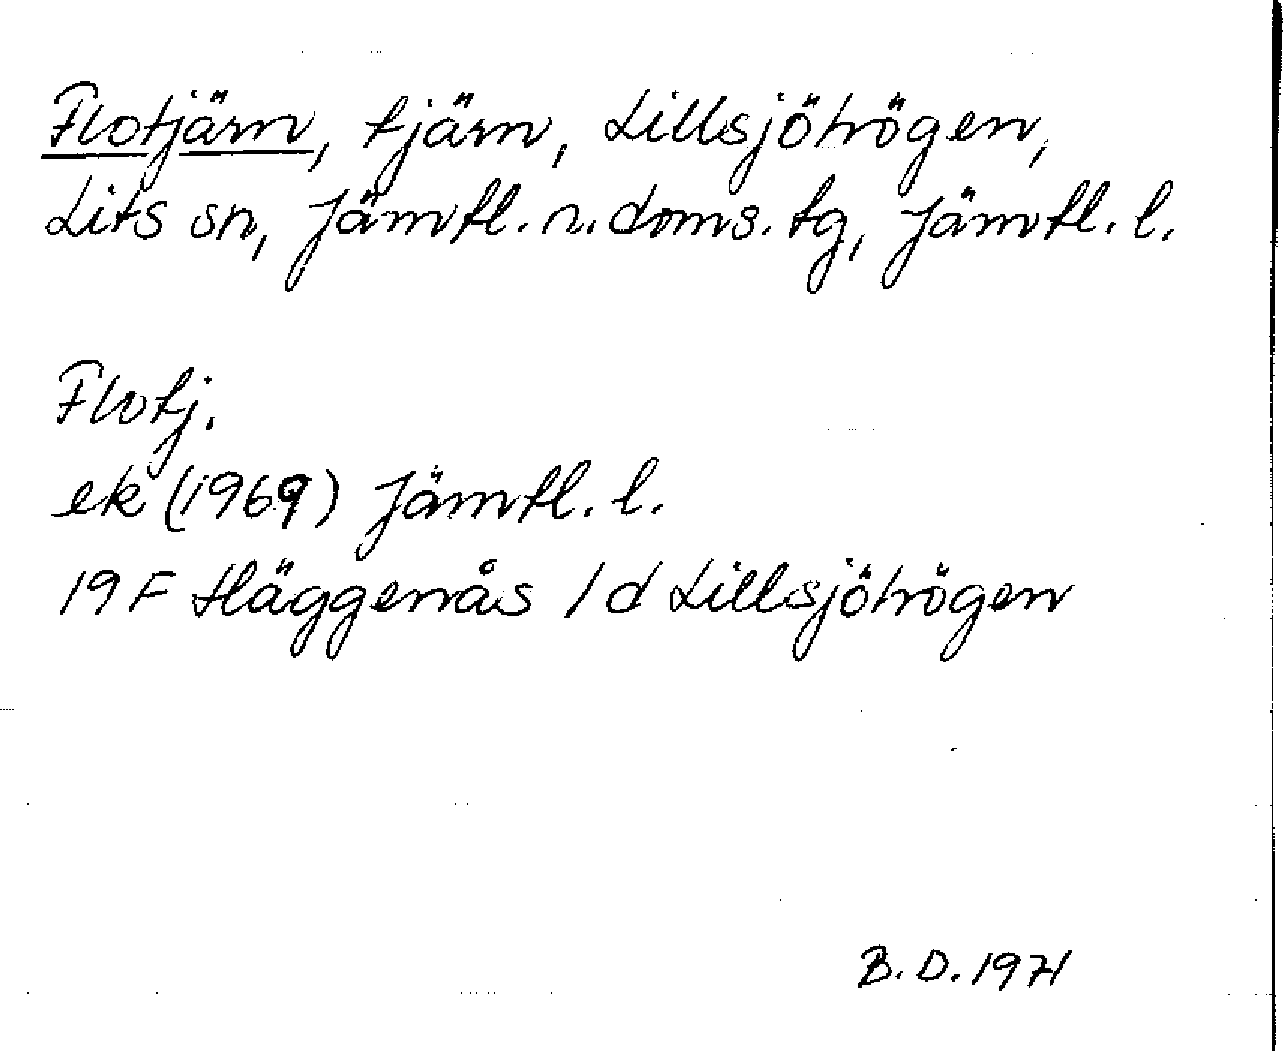 Flotjärn, tjärn, Lillsjöhögen,
Lits sn, Jämtl. n. doms. tg, Jämtl. l.
Flotj.
ek (1969) Jämtl. l.
19 F Häggenås 1 d Lillsjöhögen
B. D. 1971